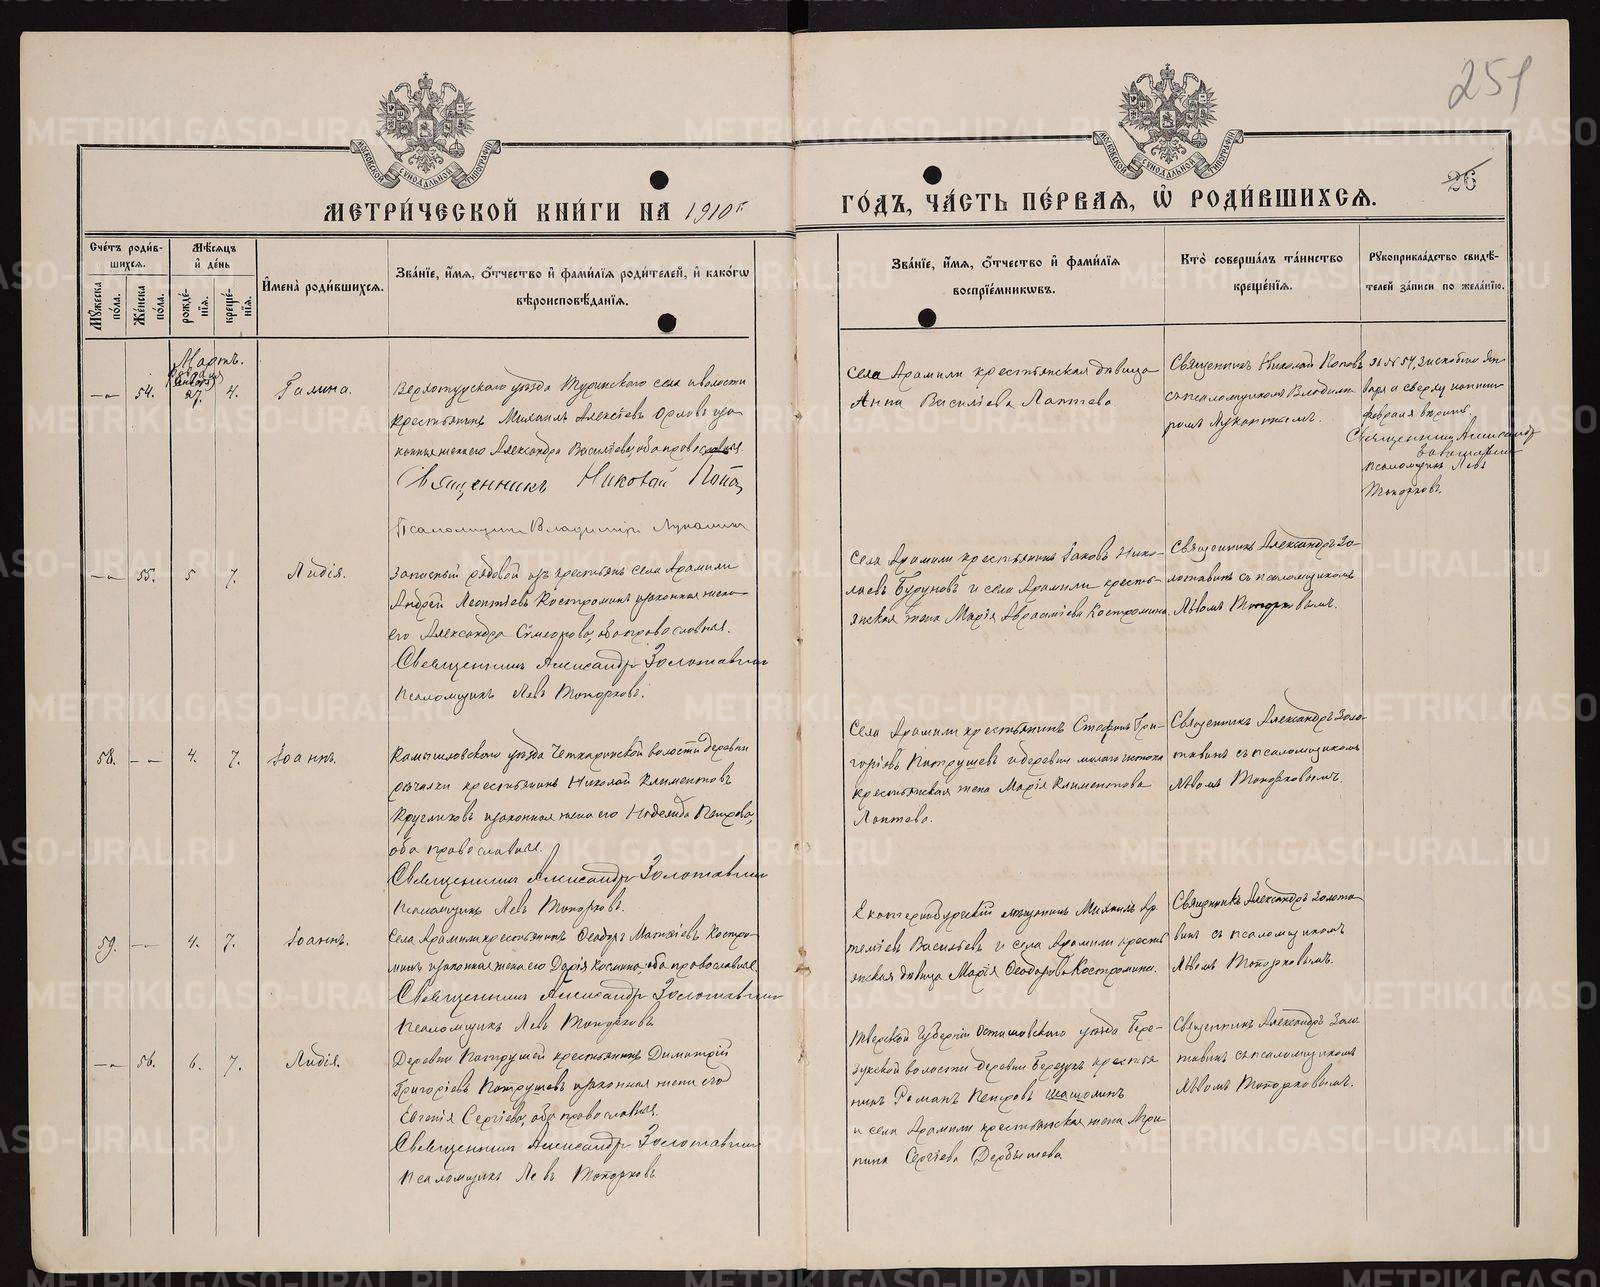 251
26
МЕТРИ́ЧЕСКОЙ КНИ́ГИ НА 1910 г.
ГО́ДЪ, ЧА́СТЬ ПЕ́РВАѦ, Ѽ РОДИ́ВШИХСѦ.
Сче́тъ роди́в-
шихсѧ.
Мꙋ́жеска по́ла.
Же́нска по́ла.
Мѣ́сѧцъ и҆ де́нь
рожде́-нїѧ.
креще́-нїѧ.
И҆мена̀ роди́вшихсѧ.
Зва́нїе, и҆́мѧ, ѻ҆́тчество и҆ фами́лїѧ роди́телей, и҆ како́гѡ
вѣроисповѣ́данїѧ.
Зва́нїе, и҆́мѧ, ѻ҆́тчество и҆ фами́лїѧ
воспрїе́мникѡвъ.
Кто̀ соверша́лъ та́инство
креще́нїѧ.
Рꙋкоприкла́дство свидѣ́-
телей за́писи по жела́нїю.
Мартъ.
54.
27.
4.
Галина.
Верхотурскаго уѣзда Туринского села и волости
крестьянинъ Михаилъ Алексѣевъ Орловъ и за-
конная жена его Александра Васильева, оба православные.
Священникъ Николай Попов
Псаломщикъ Владимір Лукании
Села Арамили крестьянская дѣвица
Анна Василіева Лаптева
Священникъ Николай Поповъ
съ псаломщикомъ Владими-
ромъ
Февраля вѣрить.
Священникъ Александр
Псаломщикъ Левъ
Топорковъ.
55.
5
7.
Лидія.
Запасный рядовой изъ крестьянъ села Арамили
Андрей Леонтіевъ Костроминъ и законная жена
его Александра Симеонова, оба православные.
Священникъ Александръ Золотавин
Псаломщикъ Левъ Топорковъ.
Села Арамили крестьянинъ Іаковъ Нико-
лаевъ Буруновъ и села Арамили кресть-
янская жена Марія Авраамiева Костромина.
Священникъ Александръ Зо-
лотавинъ съ псаломщикомъ
Львомъ Топорковымъ.
58.
4.
7.
Іоаннъ.
Камышловскаго уѣзда Четкаринской волости деревни
крестьянинъ Николай Климентовъ
Кругликовъ и законная жена его Надежда Петрова,
оба православные.
Священникъ Александръ Золотавин
Псаломщикъ Левъ Топорковъ.
Села Арамили крестьянинъ Стефанъ Гри-
горіевъ Патрушевъ и деревни малаго истока
крестьянская жена Марія Климентова
Лаптева.
Священникъ Александръ Золо-
тавинъ съ псаломщикомъ
Львомъ Топорковымъ.
59.
4.
7.
Іоаннъ.
Села Арамили крестьянинъ Ѳеодоръ Матѳіевъ Костро-
минъ и законная жена его Дарія Космина, оба православные.
Священникъ Александръ Золотавин
Псаломщикъ Левъ Топорковъ
Екатеринбургскій мѣщанинъ Михаилъ Ар-
темiевъ Васильевъ и села Арамили кресть-
янская дѣвица Марія Ѳеодорова Костромина.
Священникъ Александръ Золота-
винъ съ псаломщикомъ
Львомъ Топорковымъ.
56.
6.
7.
Лидія.
Деревни Патрушей крестьянинъ Димитрій
Григоріевъ Патрушевъ и законная жена его
Евгенія Сергіева, оба православные.
Священникъ Александръ Золотавин
Псаломщикъ Левъ Топорковъ
Тверской Губерніи Осташовскаго уѣзда Бере-
зукской волости деревни Березукъ кресть-
нинъ Романъ Петровъ Шашолинъ
и села Арамили крестьянская жена Агри-
пина Сергіева Дербышева
Священникъ Александръ Золо-
тавинъ съ псаломщикомъ
Львомъ Топорковымъ.
METRIKI.GASO-URAL.RU